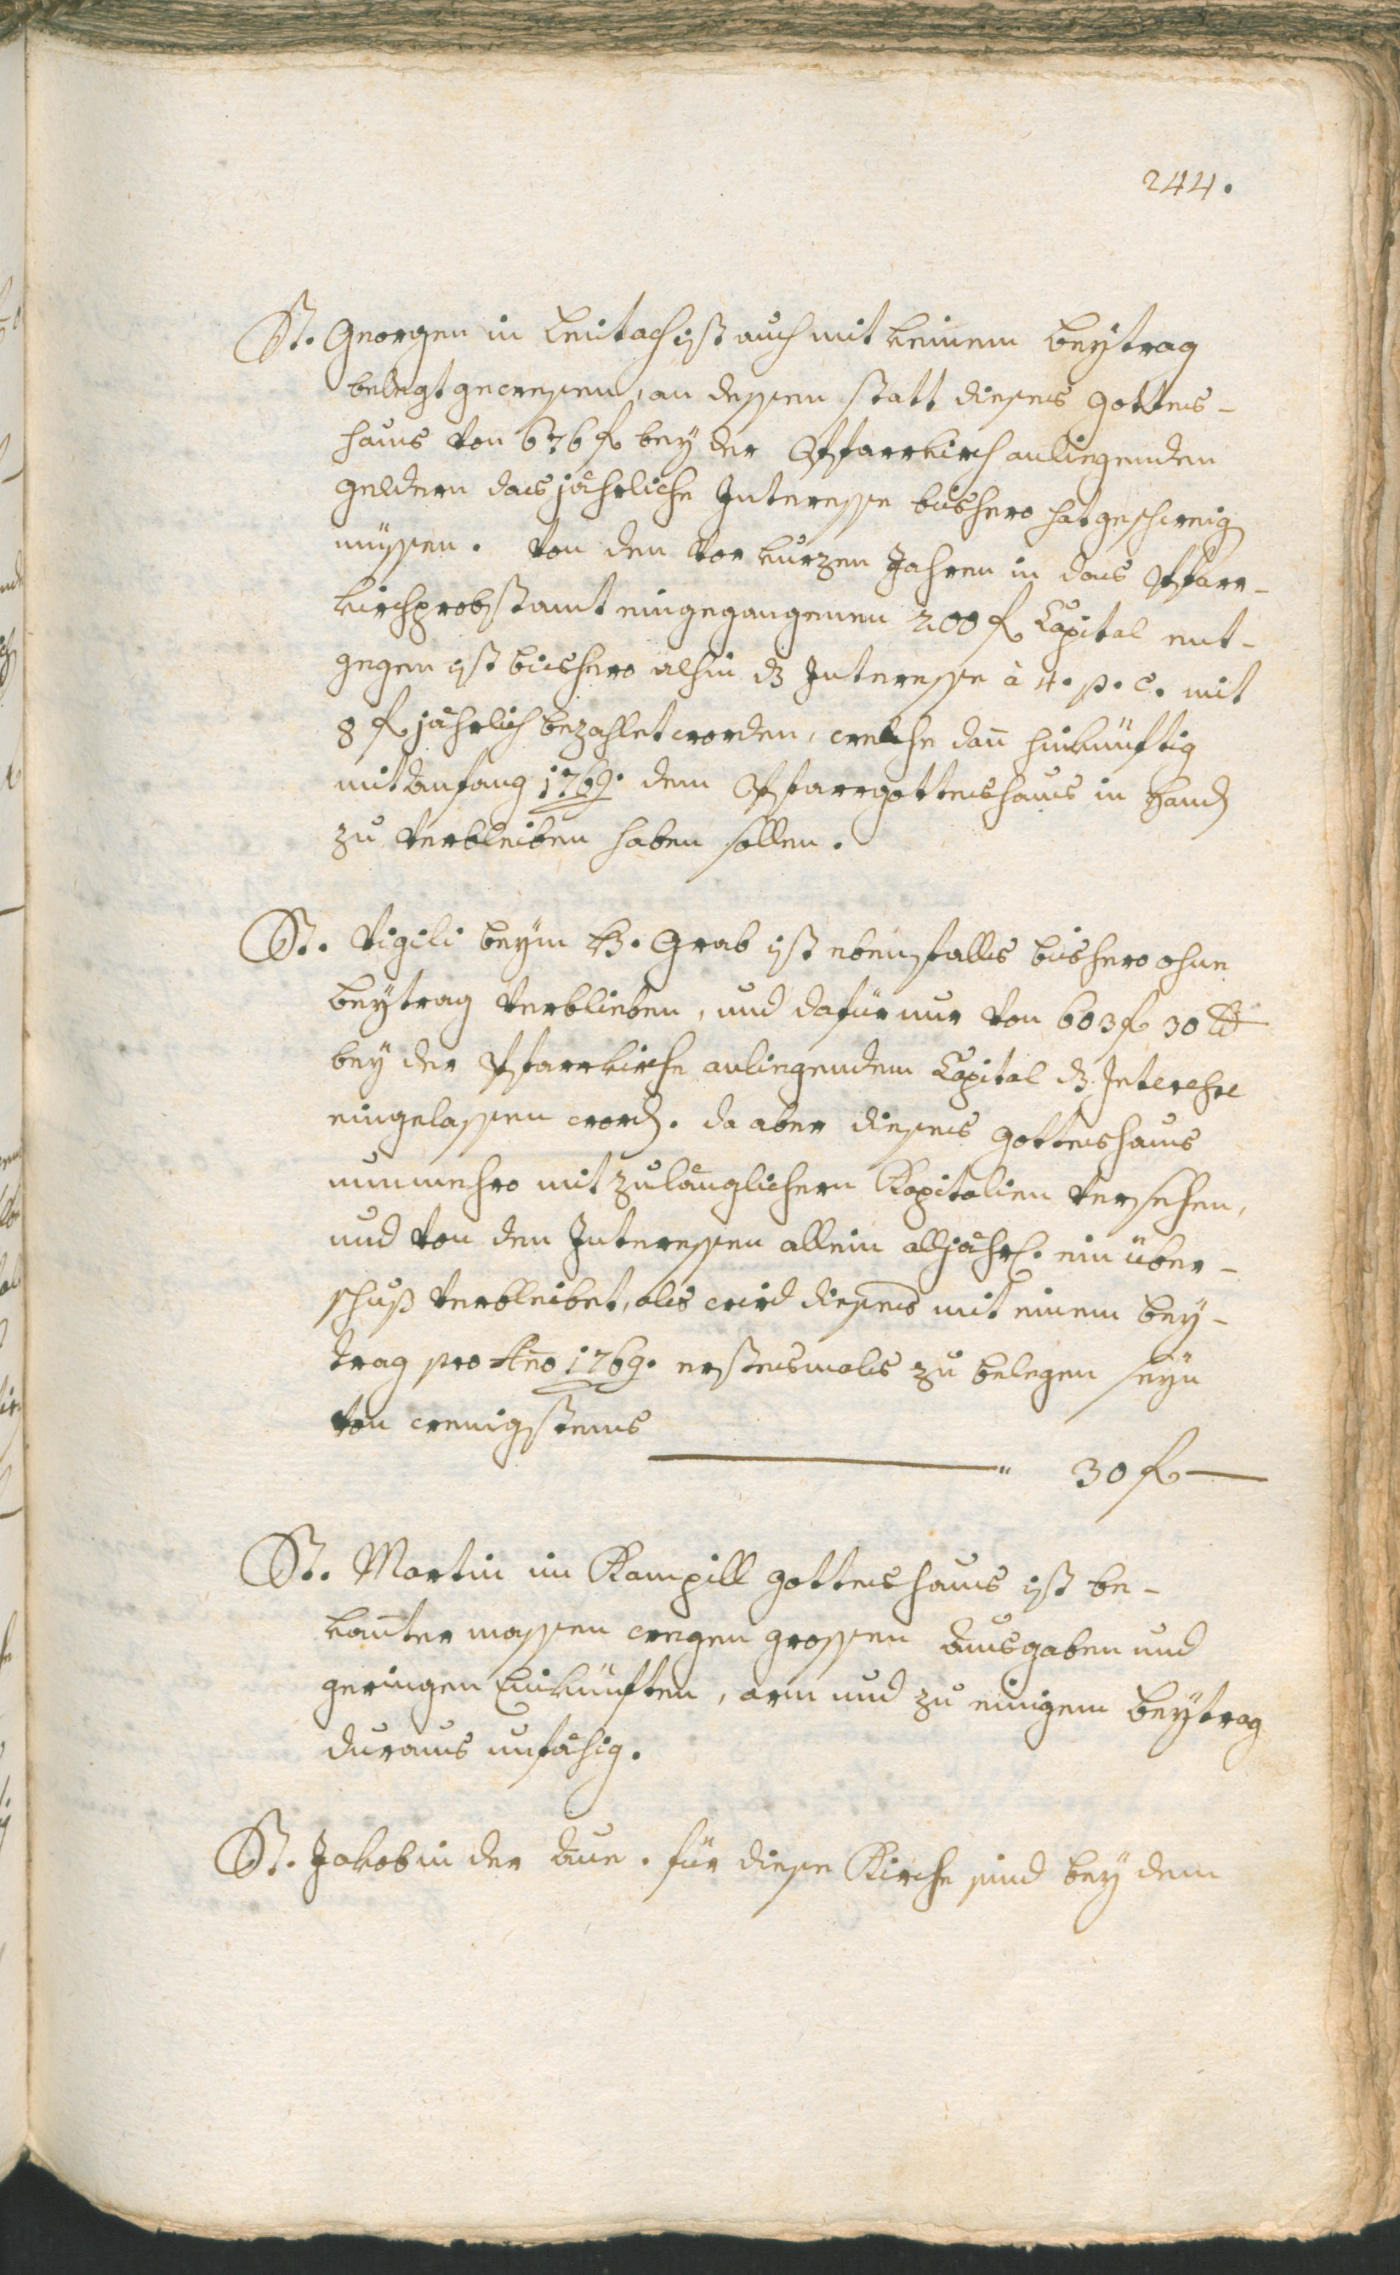 244.
St. Georgen in Leitach ist auch mit keinem beytrag
belegt gewesen, an dessen statt dieses Gottes-
haus von 676 f bey der Pfarrkirch anliegenden
geldern das jährliche Interesse bishero hat geschweig
müssen. von den vor kurzen Jahren in das Pfarr-
kirchprobstamt eingegangenen 200 f Capital ent-
gegen ist bishero alhin dz Interesse à 4. p. c. mit
8 f jährlich bezahlet worden, welche dañ hinkünftig
mit anfang 1769. dem Pfarrgotteshaus in Handen
zu verbleiben haben sollen.
St. Vigili beym H. Grab ist ebenfalls bishero ohne
beytrag verblieben, und dafür nur von 603 f 30 xr
bey der Pfarrkirche anliegendem Capital dz Interesse
eingelassen word. da aber dieses Gotteshaus
nunmehro mit zulänglichern Kapitalien versehen,
und von den Interessen allein alljährl. ein über-
schuß verbleibet, als wird dieses mit einem bey-
trag pro Año 1769. erstesmals zu belegen seyn
von wenigstens
" 30 f
St. Martin in Kampill Gotteshaus ist be-
kañter massen wegen grossen ausgaben und
geringen Einkünften, arm und zu einigem beytrag
duraus unfähig.
St. Jakob in der Aue. für diese Kirche sind bey dem